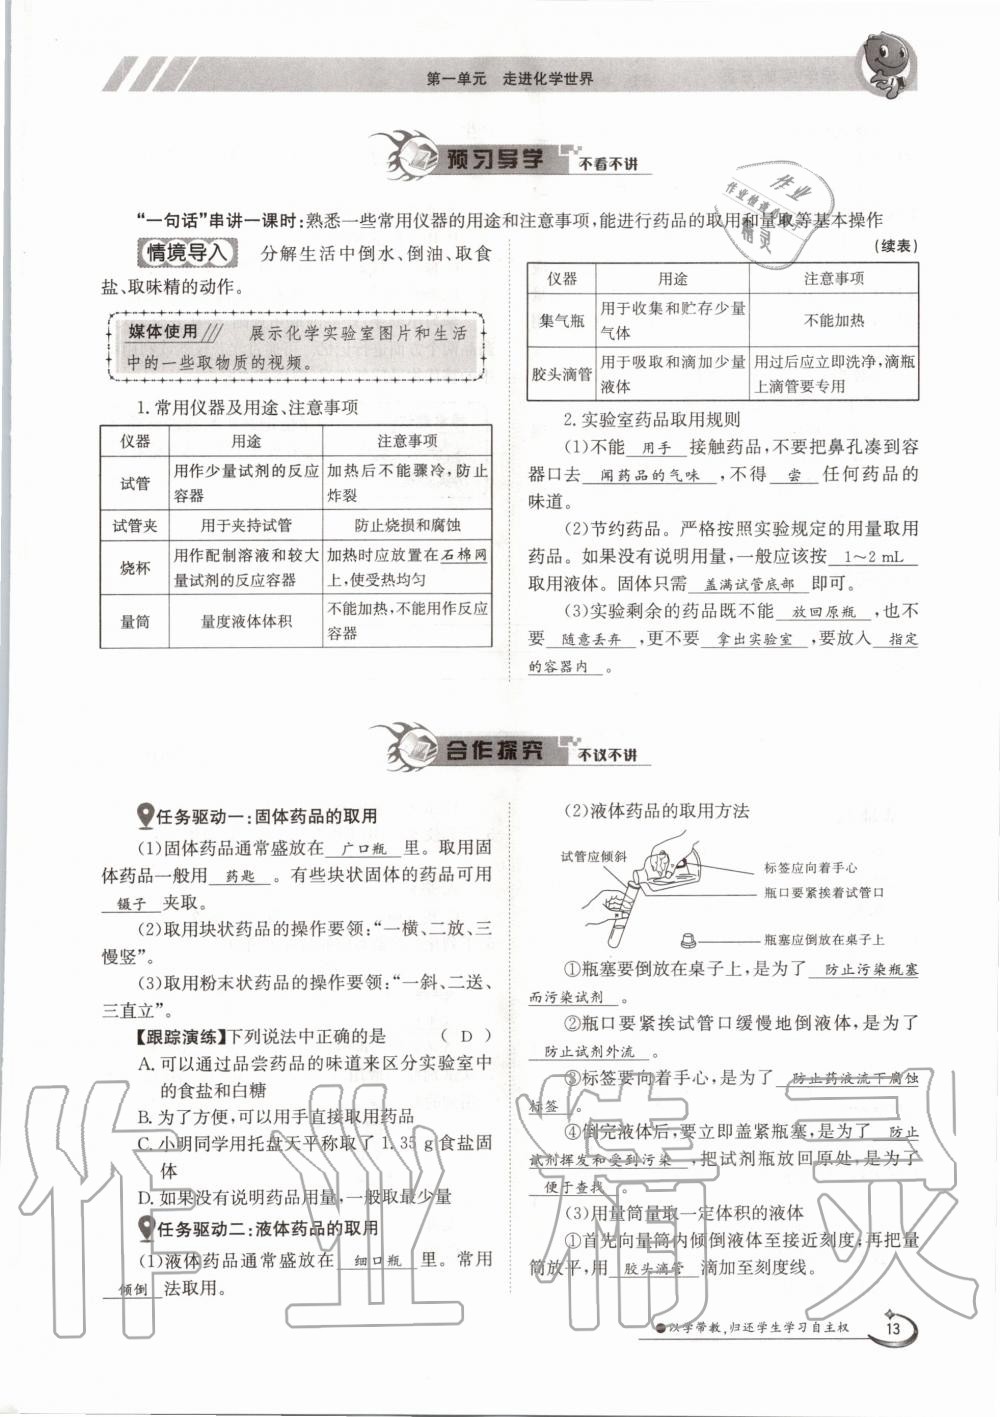 第一单元 走进化学世界
预习导学 不看不讲
“一句话”串讲一课时:熟悉一些常用仪器的用途和注意事项,能进行药品的取用和量取等基本操作
情境导入 分解生活中倒水、倒油、取食
盐、取味精的动作。
媒体使用 展示化学实验室图片和生活
中的一些取物质的视频。
1.常用仪器及用途、注意事项
仪器 用途 注意事项
试管 用作少量试剂的反应容器 加热后不能骤冷,防止炸裂
试管夹 用于夹持试管 防止烧损和腐蚀
烧杯 用作配制溶液和较大量试剂的反应容器 加热时应放置在石棉网上,使受热均匀
量筒 量度液体体积 不能加热,不能用作反应容器
(续表)
仪器 用途 注意事项
集气瓶 用于收集和贮存少量气体 不能加热
胶头滴管 用于吸取和滴加少量液体 用过后应立即洗净,滴瓶上滴管要专用
2.实验室药品取用规则
(1)不能 用手 接触药品,不要把鼻孔凑到容
器口去 闻药品的气味 ,不得 尝 任何药品的
味道。
(2)节约药品。严格按照实验规定的用量取用
药品。如果没有说明用量,一般应该按 1～2 mL
取用液体。固体只需 盖满试管底部 即可。
(3)实验剩余的药品既不能 放回原瓶 ,也不
要 随意丢弃 ,更不要 拿出实验室 ,要放入 指定
的容器内 。
合作探究 不议不讲
任务驱动一:固体药品的取用
(1)固体药品通常盛放在 广口瓶 里。取用固
体药品一般用 药匙 。有些块状固体的药品可用
镊子 夹取。
(2)取用块状药品的操作要领:“一横、二放、三
慢竖”。
(3)取用粉末状药品的操作要领:“一斜、二送、
三直立”。
【跟踪演练】下列说法中正确的是 ( D )
A.可以通过品尝药品的味道来区分实验室中
的食盐和白糖
B.为了方便,可以用手直接取用药品
C.小明同学用托盘天平称取了 1.35 g 食盐固
体
D.如果没有说明药品用量,一般取最少量
任务驱动二:液体药品的取用
(1)液体药品通常盛放在 细口瓶 里。常用
倾倒 法取用。
(2)液体药品的取用方法
试管应倾斜
标签应向着手心
瓶口要紧挨着试管口
瓶塞应倒放在桌子上
①瓶塞要倒放在桌子上,是为了 防止污染瓶塞
而污染试剂 。
②瓶口要紧挨试管口缓慢地倒液体,是为了
防止试剂外流 。
③标签要向着手心,是为了 防止药液流下腐蚀
标签 。
④倒完液体后,要立即盖紧瓶塞,是为了 防止
试剂挥发和受到污染 ,把试剂瓶放回原处,是为了
便于查找 。
(3)用量筒量取一定体积的液体
①首先向量筒内倾倒液体至接近刻度;再把量
筒放平,用 胶头滴管 滴加至刻度线。
以学带教,归还学生学习自主权
13
作业精灵